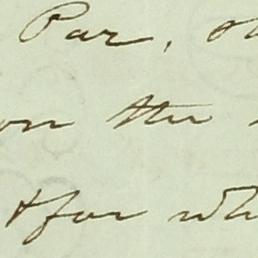 Par, th
on the
& for wh